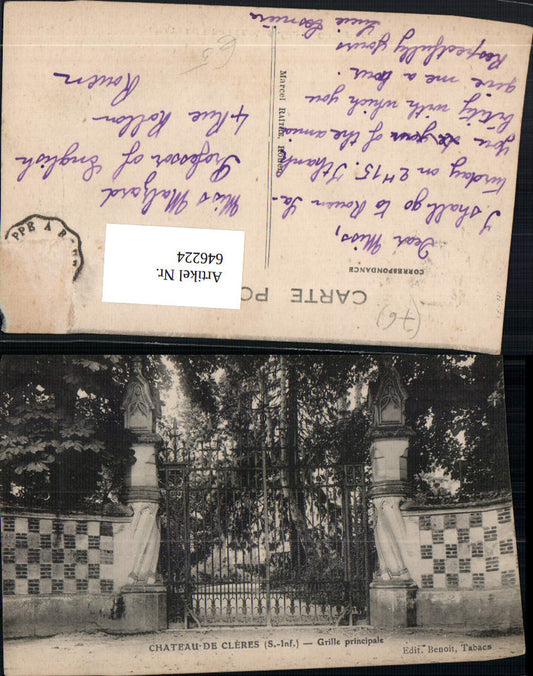 CARTE PO
CORRESPONDANCE
Dear Miss,
I shall go to Rouen Sa-
turday on 2H15. I thank
you of the amia
bility with which you
give me a
Respectfully yours
Lucie
Marcel
Miss
Professor of English
4 Rue Rollon
Rouen
(76)
Artikel Nr.
646224
CHATEAU DE CLÈRES (S.-Inf.) — Grille principale
Edit. Benoit, Tabacs